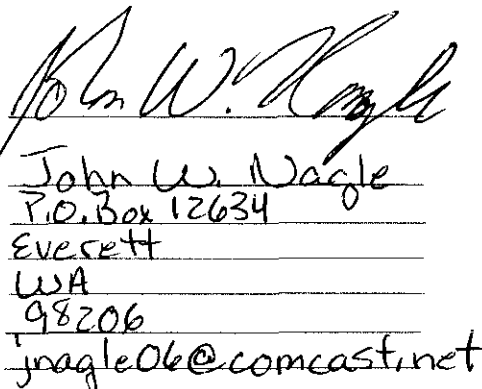 John W. Nagle
John W. Nagle
P.O. Box 12634
Everett
WA
98206
jnagle06@comcast.net